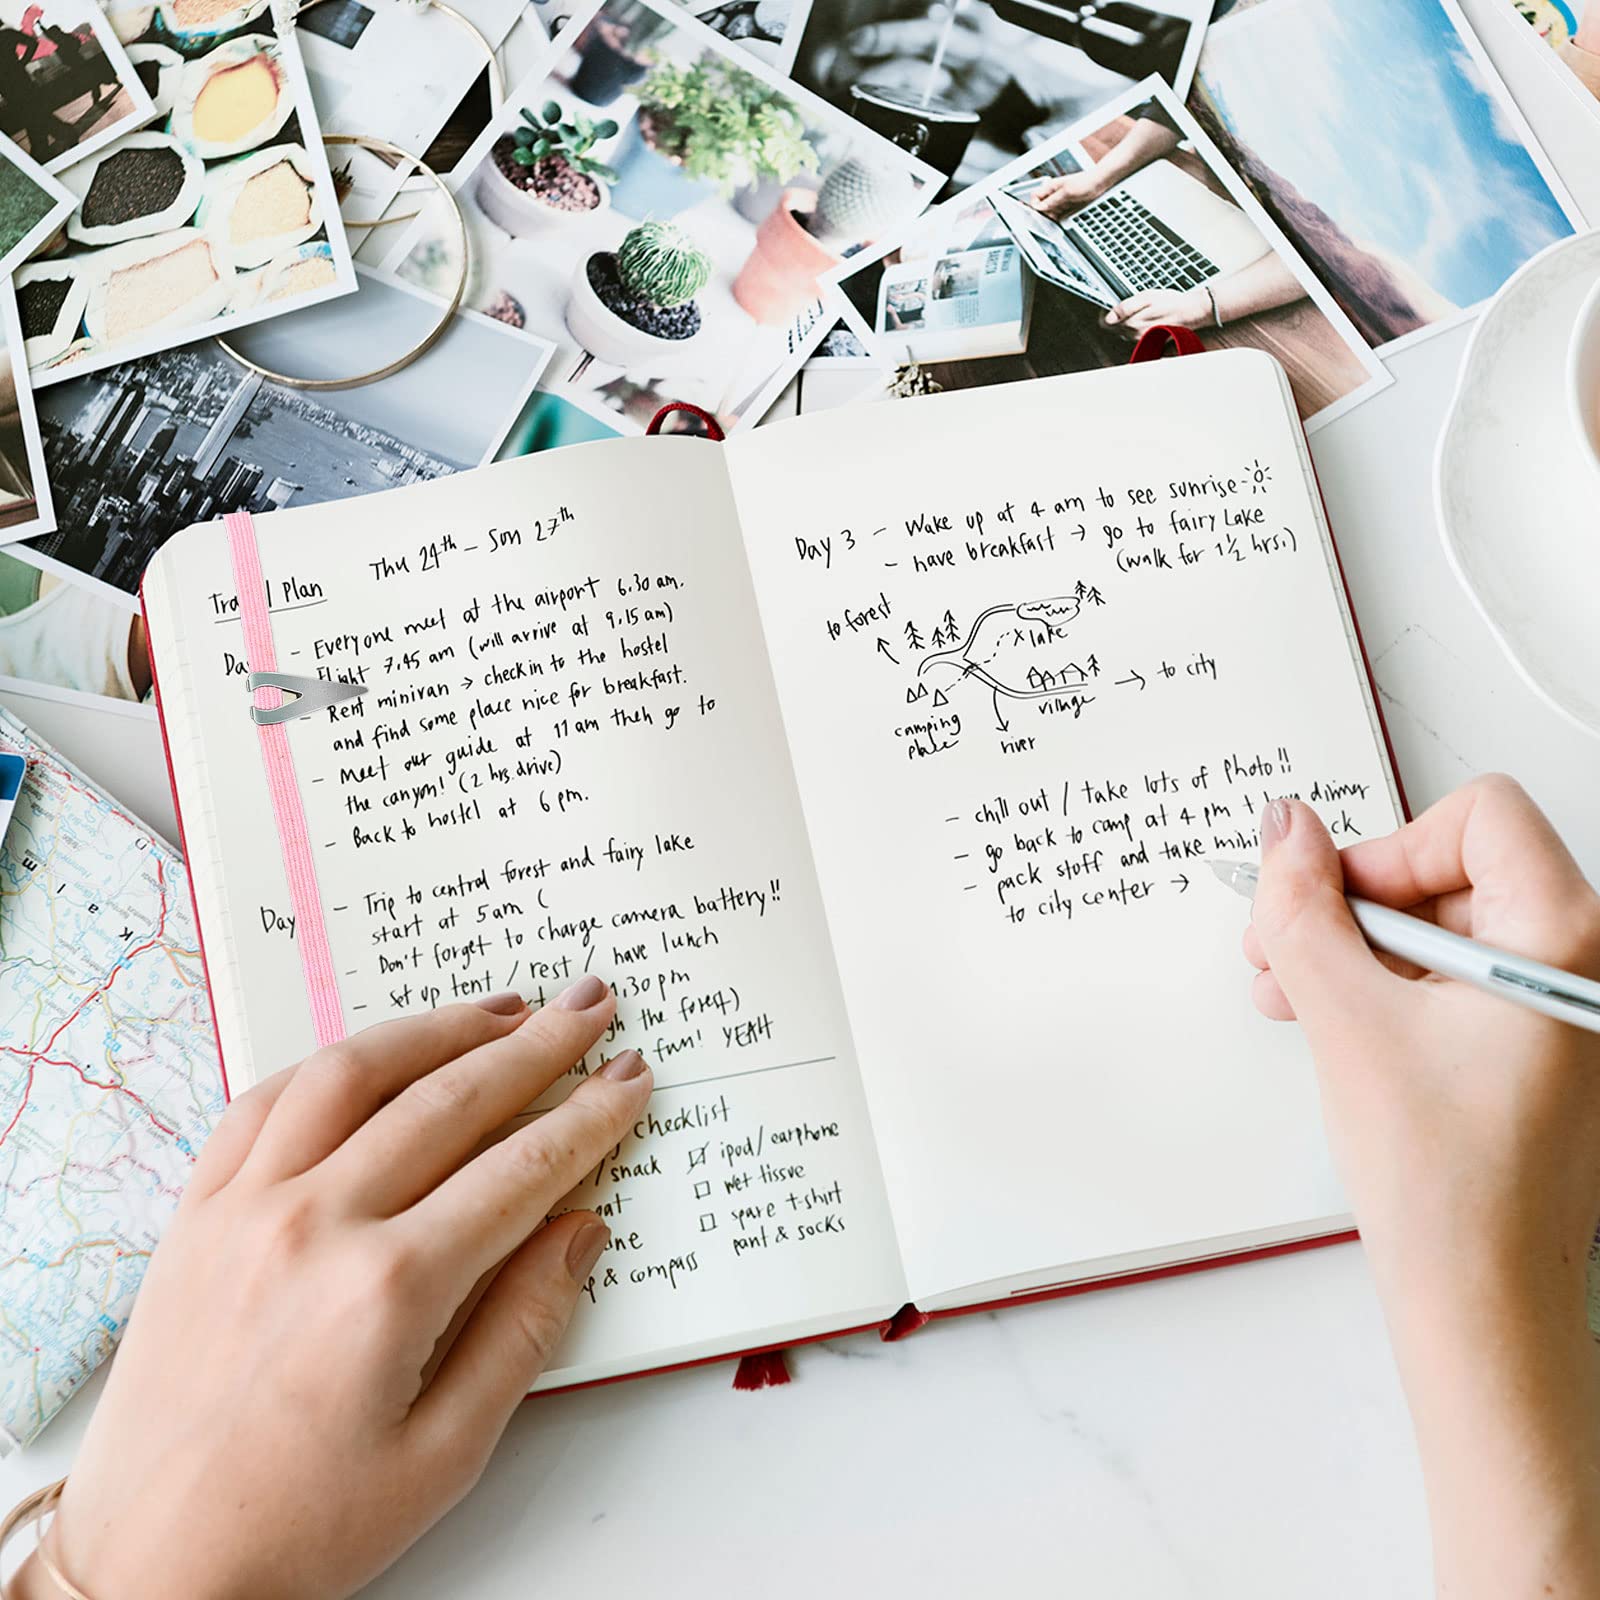 Thu 24th – Sun 27th
Travel Plan
Day
- Everyone meet at the airport 6.30 am.
- Flight 7.45 am (will arrive at 9.15 am)
- Rent minivan → check in to the hostel
and find some place nice for breakfast.
- Meet our guide at 11 am then go to
the canyon! (2 hrs. drive)
- Back to hostel at 6 pm.
Day
- Trip to central forest and fairy lake
start at 5 am (
- Don't forget to charge camera battery!!
- Set up tent / rest / have lunch
1.30 pm
the forest)
fun! YEAH
checklist
/ snack
ipod / earphone
wet tissue
spare t-shirt
pant & socks
& compass
Day 3 - Wake up at 4 am to see sunrise
- have breakfast → go to fairy Lake
(walk for 1½ hrs.)
to forest
x lake
→ to city
village
camping
place
river
- chill out / take lots of photo!!
- go back to camp at 4 pm + have dinner
- pack stuff and take
to city center →